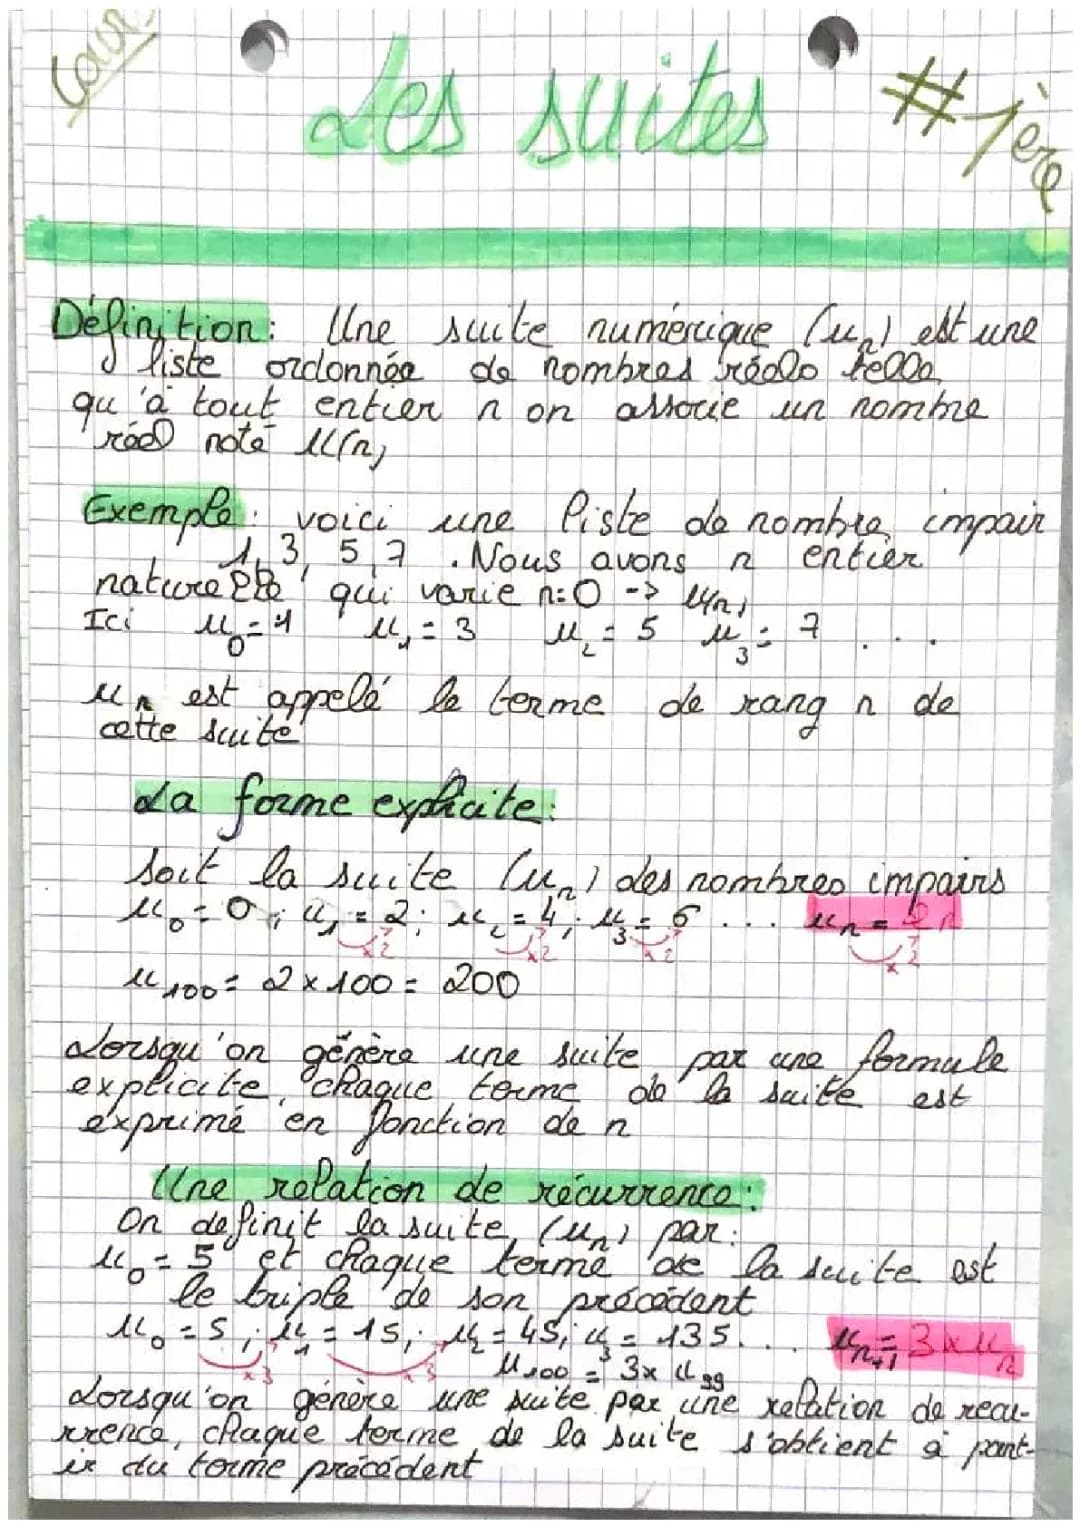 Cours
Les suites
#1ère
Définition: Une suite numérique (un) est une
liste ordonnée de nombres réels telle
qu'à tout entier n on associe un nombre
réel noté u(n)
Exemple: voici une liste de nombre impair
1, 3, 5, 7. Nous avons n entier
naturelle qui varie n=0 -> u(n)
Ici u0=1 u1=3 u2=5 u3=7 ...
un est appelé le terme de rang n de
cette suite
La forme explicite:
Soit la suite (un) des nombres impairs
u0=0; u1=2; u2=4; u3=6 ... un=2n
x2 x2 x2 x2
u100=2x100=200
Lorsqu'on génère une suite par une formule
explicite, chaque terme de la suite est
exprimé en fonction de n
Une relation de récurrence:
On definit la suite (un) par:
u0=5 et chaque terme de la suite est
le triple de son précédent
u0=5; u1=15; u2=45; u3=135... un+1=3xun
x3 x3
u100=3xu99
Lorsqu'on génère une suite par une relation de récu-
rrence, chaque terme de la suite s'obtient à part-
ir du terme précédent